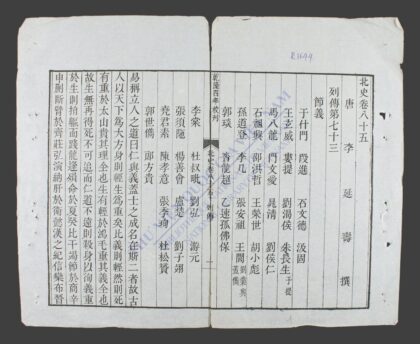 R.1644
北史卷八十五
唐 李延壽 撰
列傳第七十三
節義
于什門 段進 石文德 汲固
王玄威 婁提 劉渴侯 朱長生 于提
馬八龍 門文愛 晁清 劉侯仁
石祖興 邵洪哲 王榮世 胡小彪
孫道登 李几 張安祖 王閭
郭琰 沓龍超 乙速孤佛保
乾隆四年校刊
李棠 杜叔毗 劉弘 游元
張須陁 楊善會 盧楚 劉子翊
堯君素 陳孝意 張季珣 杜松贇
郭世儁 郎方貴
易稱立人之道曰仁與義蓋士之成名在斯二者故古
人以天下為大方身則輕生為重矣比義則輕然則死
有重於太山貴其理全也生有輕於鴻毛重其義全也
故生無再得死不可追而仁道不遠則殺身以徇義重
於生則捐軀而踐龍逢殞命於夏癸比干竭節於商辛
申蒯斷臂於齊莊弘演納肝於衛懿漢之紀信欒布晉